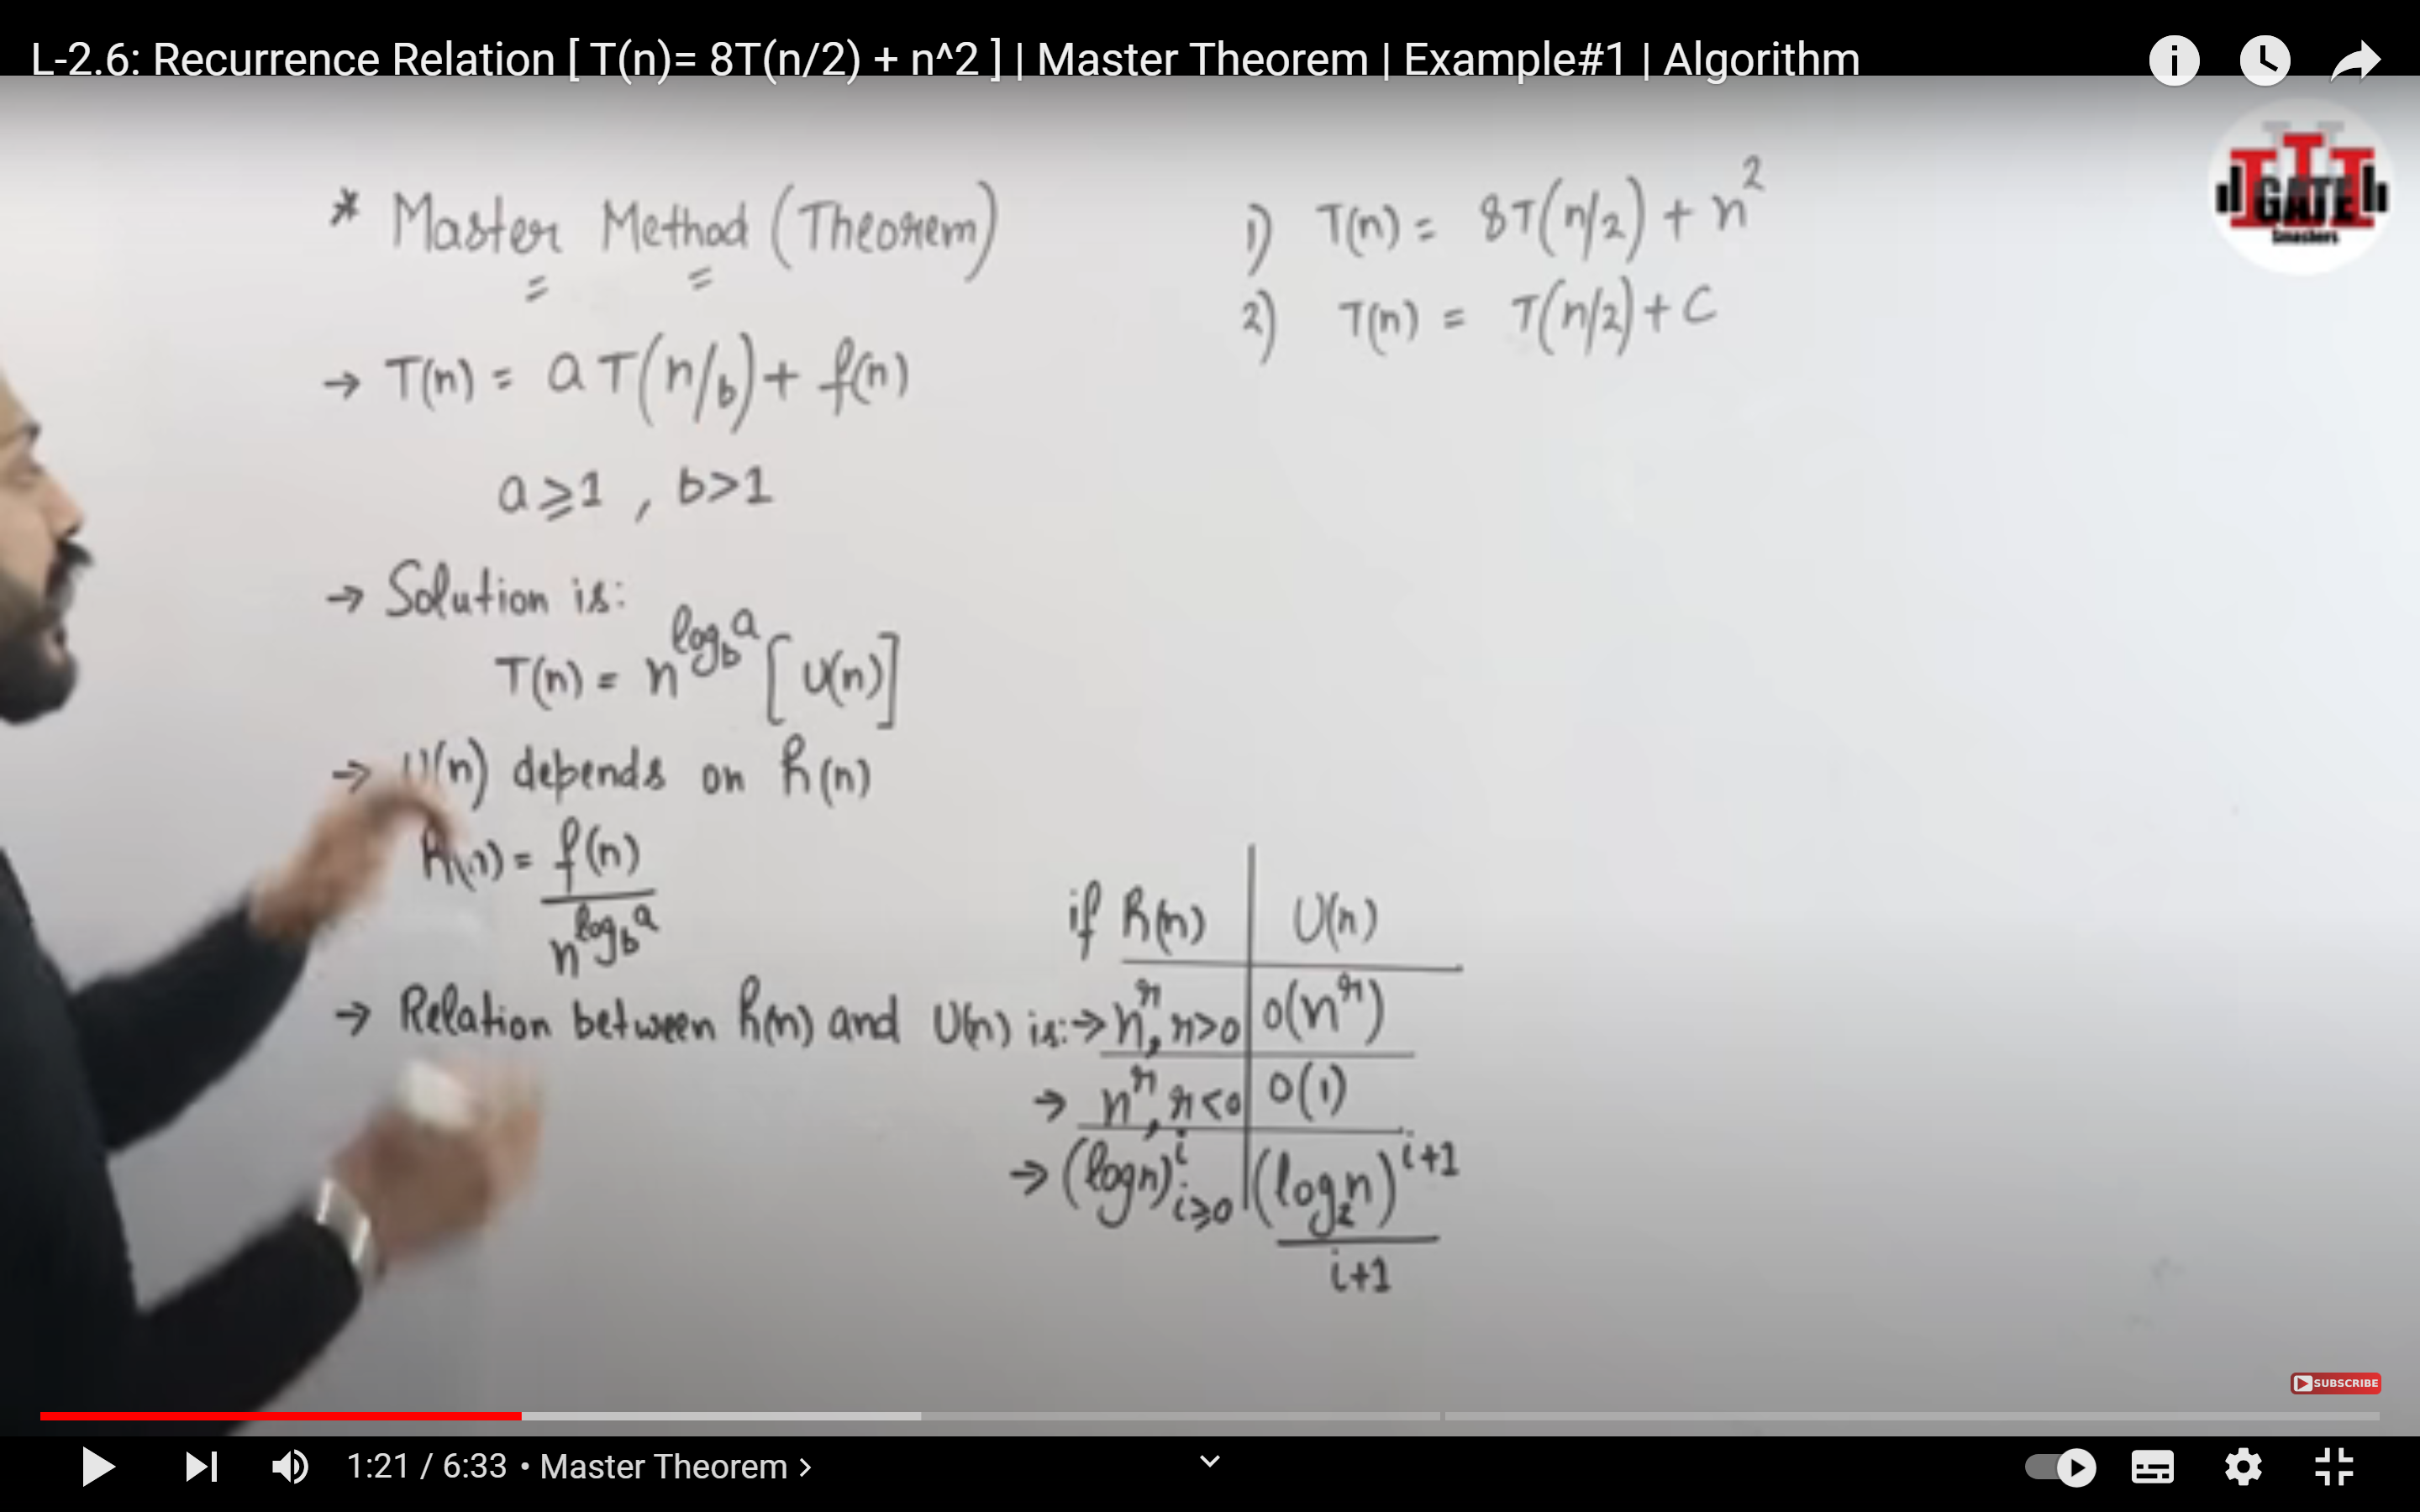 L-2.6: Recurrence Relation [ T(n)= 8T(n/2) + n^2 ] | Master Theorem | Example#1 | Algorithm
GATE
Smashers
* Master Method (Theorem)
→ T(n) = a T(n/b) + f(n)
a ⩾ 1 , b > 1
→ Solution is:
T(n) = n^{log_b a} [U(n)]
→ U(n) depends on h(n)
h(n) = f(n) / n^{log_b a}
→ Relation between h(n) and U(n) is:
if h(n) | U(n)
→ n^r, r>0 | O(n^r)
→ n^r, r<0 | O(1)
→ (log n)^i i⩾0 | (log_2 n)^{i+1} / i+1
1) T(n) = 8T(n/2) + n^2
2) T(n) = T(n/2) + C
SUBSCRIBE
1:21 / 6:33 • Master Theorem >